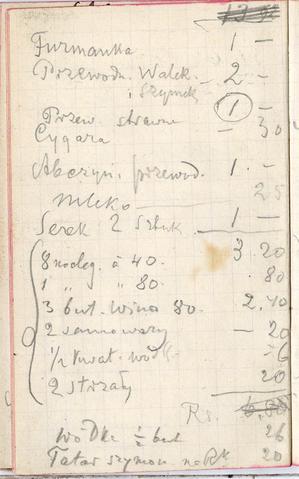 13
Furmanka 1 —
Przewodn. Walek. 2 —
i Szymek
Przew. strawne 1
Cygara — 30
przewod. 1 —
mleko 25
Serek 2 sztuk. 1 —
8 nocleg. á 40. 3.20
1 „ „ 80. 80
3 but. wina 80. 2.40
2 samowary — 20
1/2 kwat. wodk. 6
2 strzały 20
Rs.
wodki 1/2 but 26
Tatar Szymon 20